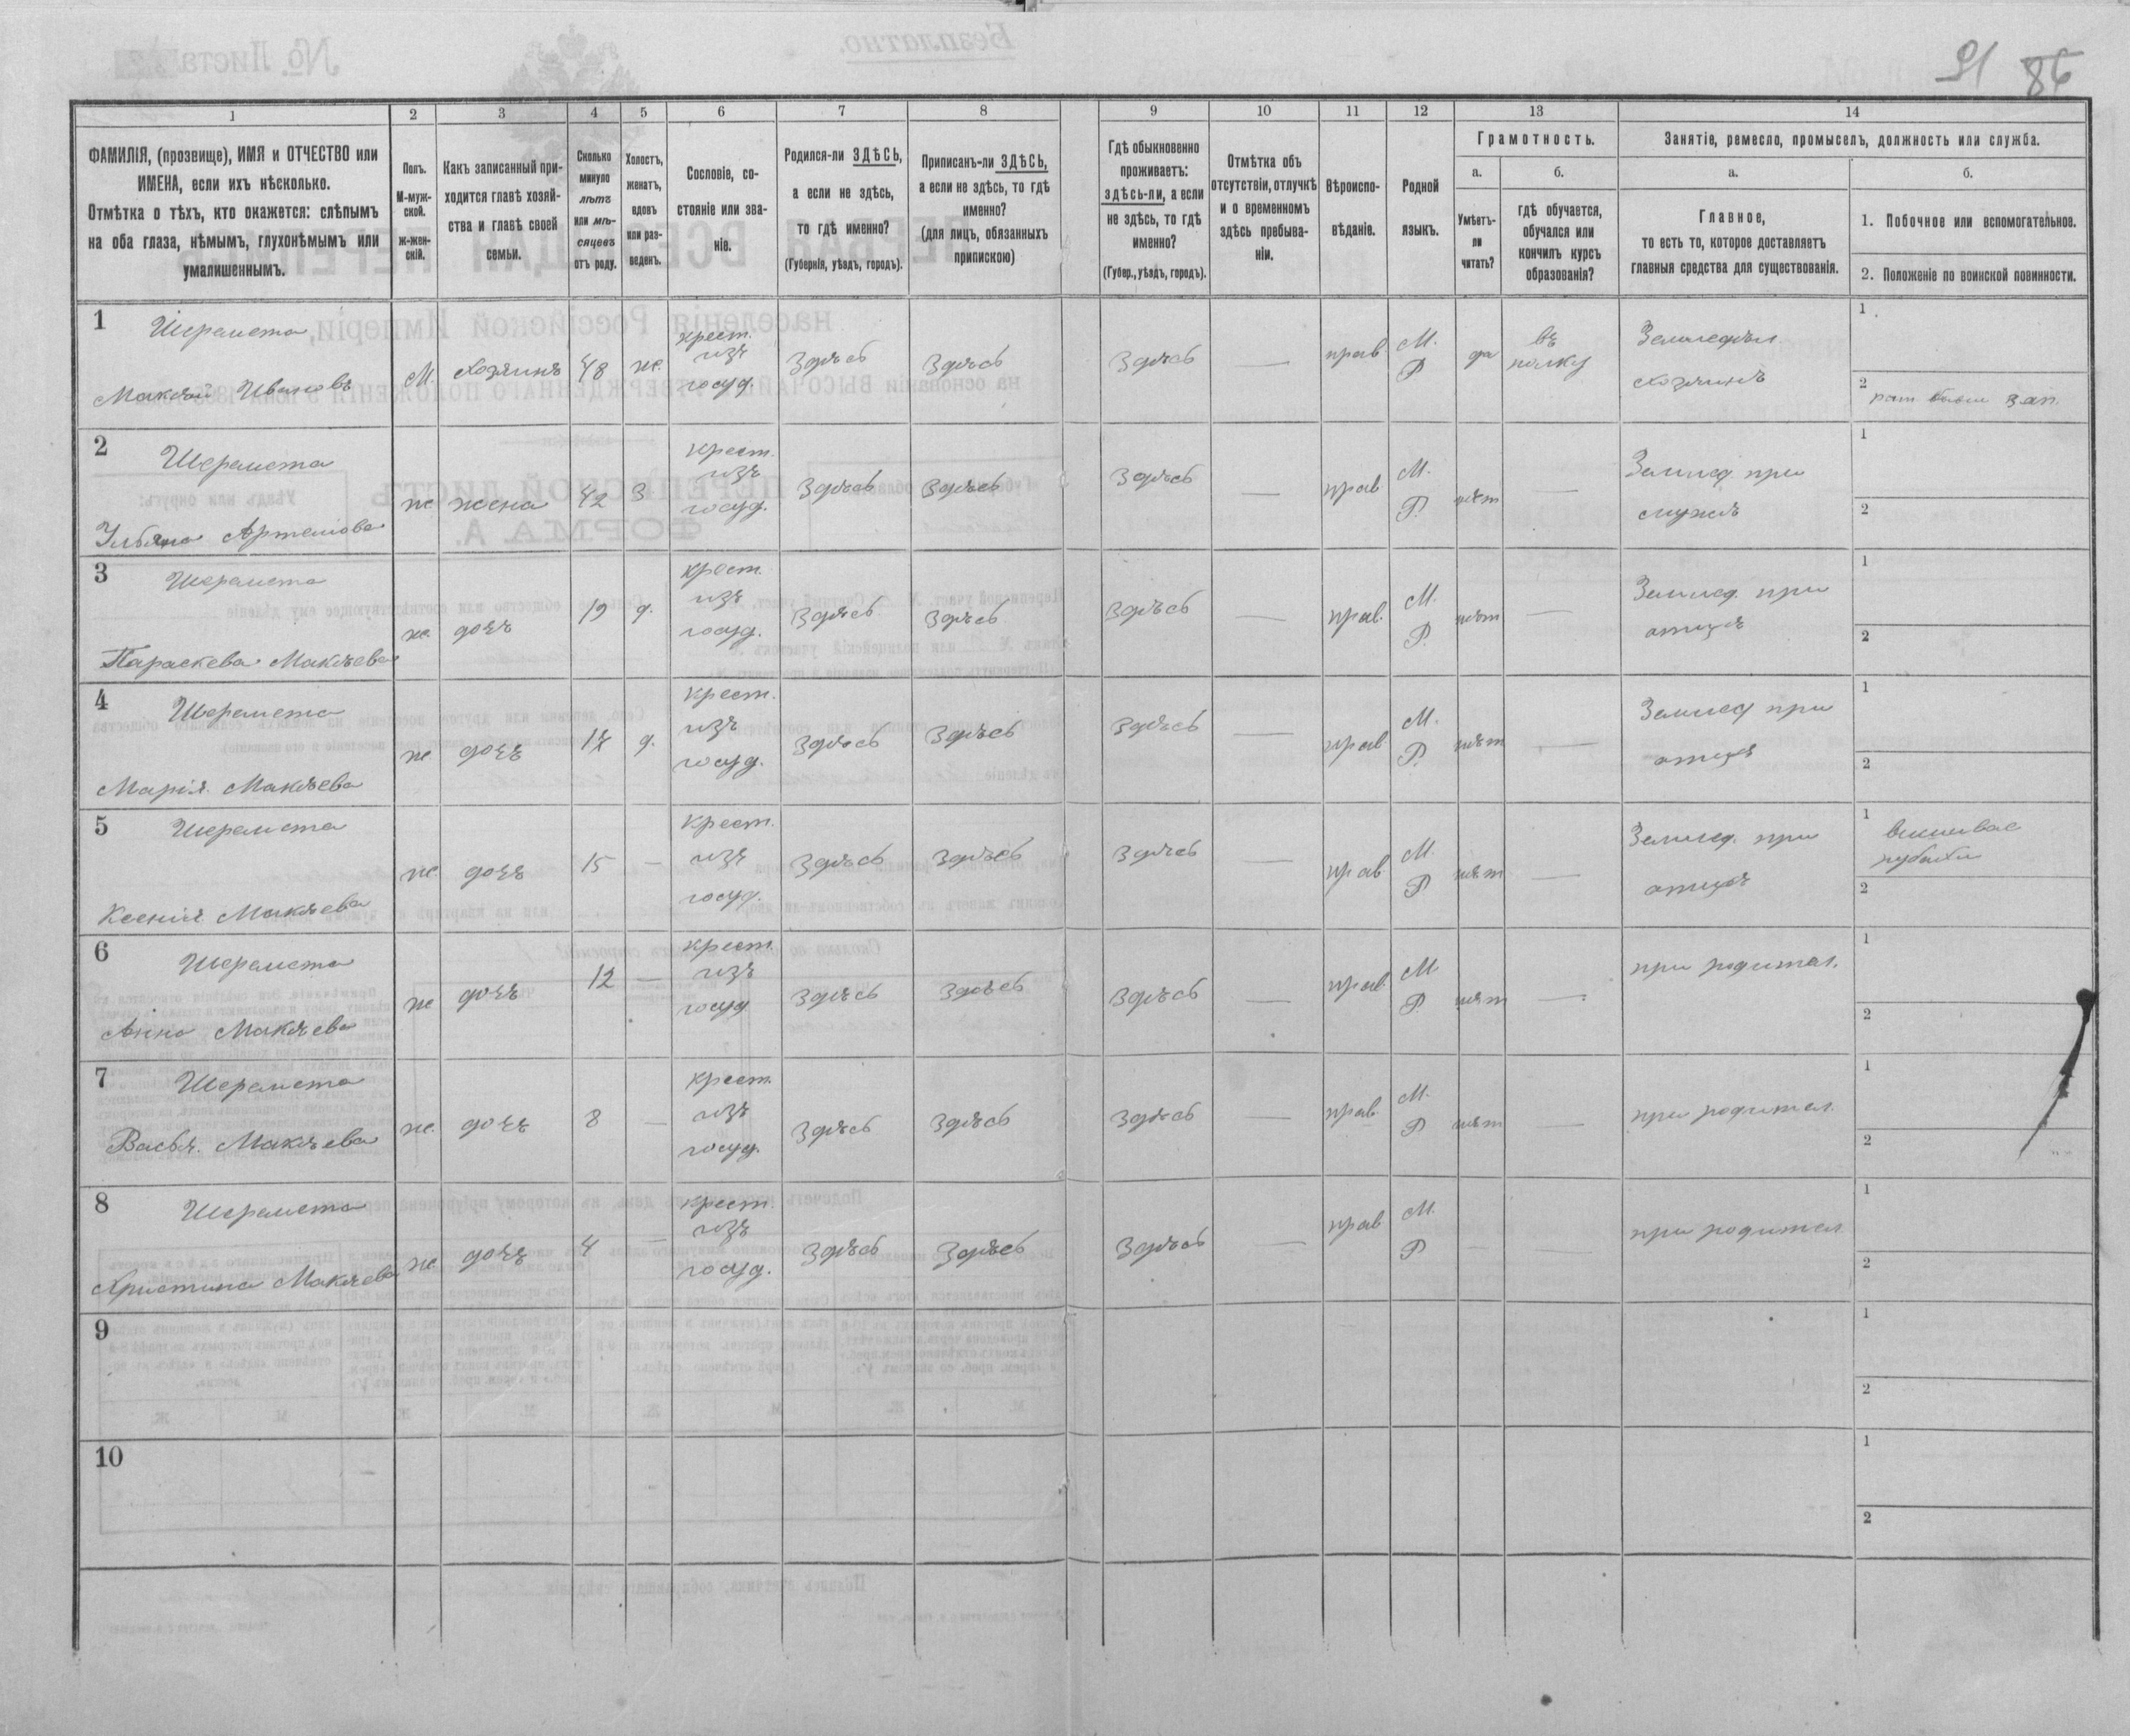 91 86
1 2 3 4 5 6 7 8 9 10 11 12 13 14
ФАМИЛІЯ, (прозвище), ИМЯ и ОТЧЕСТВО или ИМЕНА, если ихъ нѣсколько.
Отмѣтка о тѣхъ, кто окажется: слѣпымъ на оба глаза, нѣмымъ, глухонѣмымъ или умалишеннымъ.
Полъ. М-мужской. ж-женскій.
Какъ записанный приходится главѣ хозяйства и главѣ своей семьи.
Сколько минуло лѣтъ или мѣсяцевъ отъ роду.
Холостъ, женатъ, вдовъ или разведенъ.
Сословіе, состояніе или званіе.
Родился-ли ЗДѢСЬ, а если не здѣсь, то гдѣ именно? (Губернія, уѣздъ, городъ).
Приписанъ-ли ЗДѢСЬ, а если не здѣсь, то гдѣ именно? (для лицъ, обязанныхъ припискою)
Гдѣ обыкновенно проживаетъ: здѣсь-ли, а если не здѣсь, то гдѣ именно? (Губер., уѣздъ, городъ).
Отмѣтка объ отсутствіи, отлучкѣ и о временномъ здѣсь пребываніи.
Вѣроисповѣданіе.
Родной языкъ.
Грамотность.
а. Умѣетъ-ли читать?
б. гдѣ обучается, обучался или кончилъ курсъ образованія?
Занятіе, ремесло, промыселъ, должность или служба.
а. Главное, то есть то, которое доставляетъ главныя средства для существованія.
б.
1. Побочное или вспомогательное.
2. Положеніе по воинской повинности.
1 Шеремета
Мокѣй Ивановъ М. хозяинъ 48 ж. крест. изъ госуд. Здѣсь Здѣсь Здѣсь — прав М. Р да въ полку Земледѣл. хозяинъ 1
2 зап.
2 Шеремета
Ульяна Артемова ж жена 42 З крест. изъ госуд. Здѣсь Здѣсь Здѣсь — прав М. Р. нѣт — Землед при мужѣ 1
2
3 Шеремета
Параскева Мокѣева ж. дочь 19 д. крест. изъ госуд. Здѣсь Здѣсь Здѣсь — прав. М. Р. нѣт — Землед. при отцѣ 1
2
4 Шеремета
Марія Мокѣева ж дочь 17 д. крест. изъ госуд. Здѣсь Здѣсь Здѣсь — прав М. Р. нѣт — Землед при отцѣ 1
2
5 Шеремета
Ксенія Мокѣева ж. дочь 15 — крест. изъ госуд. Здѣсь Здѣсь Здѣсь — прав М. Р нѣт — Землед. при отцѣ 1 вишивае
2
6 Шеремета
Анна Мокѣева ж дочь 12 — крест. изъ госуд Здѣсь Здѣсь Здѣсь — прав М Р. нѣт — при родител. 1
2
7 Шеремета
Васья. Мокѣева ж. дочь 8 — крест. изъ госуд. Здѣсь Здѣсь Здѣсь — прав. М. Р нѣт — при родител. 1
2
8 Шеремета
Христина Мокѣева ж дочь 4 — крест. изъ госуд. Здѣсь Здѣсь Здѣсь — прав М. Р — при родител 1
2
9 1
2
10 1
2